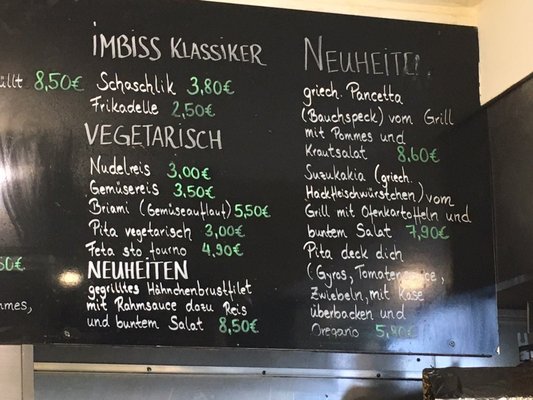 üllt 8,50€
50€
mmes,
iMBISS KLASSIKER
Schaschlik 3,80€
Frikadelle 2,50€
VEGETARISCH
Nudelreis 3,00€
Gemüsereis 3,50€
Briami (Gemüseauflauf) 5,50€
Pita vegetarisch 3,00€
Feta sto fourno 4,90€
NEUHEITEN
gegrilltes Hähnchenbrustfilet
mit Rahmsauce dazu Reis
und buntem Salat 8,50€
NEUHEITEN
griech. Pancetta
(Bauchspeck) vom Grill
mit Pommes und
Krautsalat 8,60€
Suzukakia (griech.
Hackfleischwürstchen) vom
Grill mit Ofenkartoffeln und
buntem Salat 7,90€
Pita deck dich
(Gyros, Tomatensauce,
Zwiebeln, mit Käse
überbacken und
Oregano 5,90€